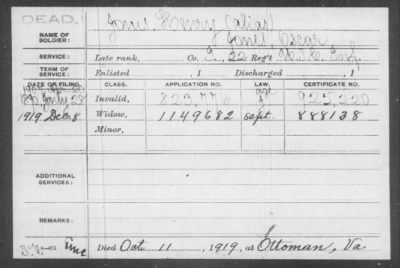 DEAD.
NAME OF SOLDIER: Jones Henry (alias)
Jones, Oscar
SERVICE: Late rank, Co. G, 22 Reg't U.S.C. Inf.
TERM OF SERVICE: Enlisted , 1 Discharged , 1
DATE OF FILING. CLASS. APPLICATION NO. LAW. CERTIFICATE NO.
1890 July 28 Invalid, 823,776 925,220
1919 Dec 8 Widow, 1149682 Sept. 888138
Minor,
ADDITIONAL SERVICES:
REMARKS:
Died Oct 11, 1919, at Ottoman, Va